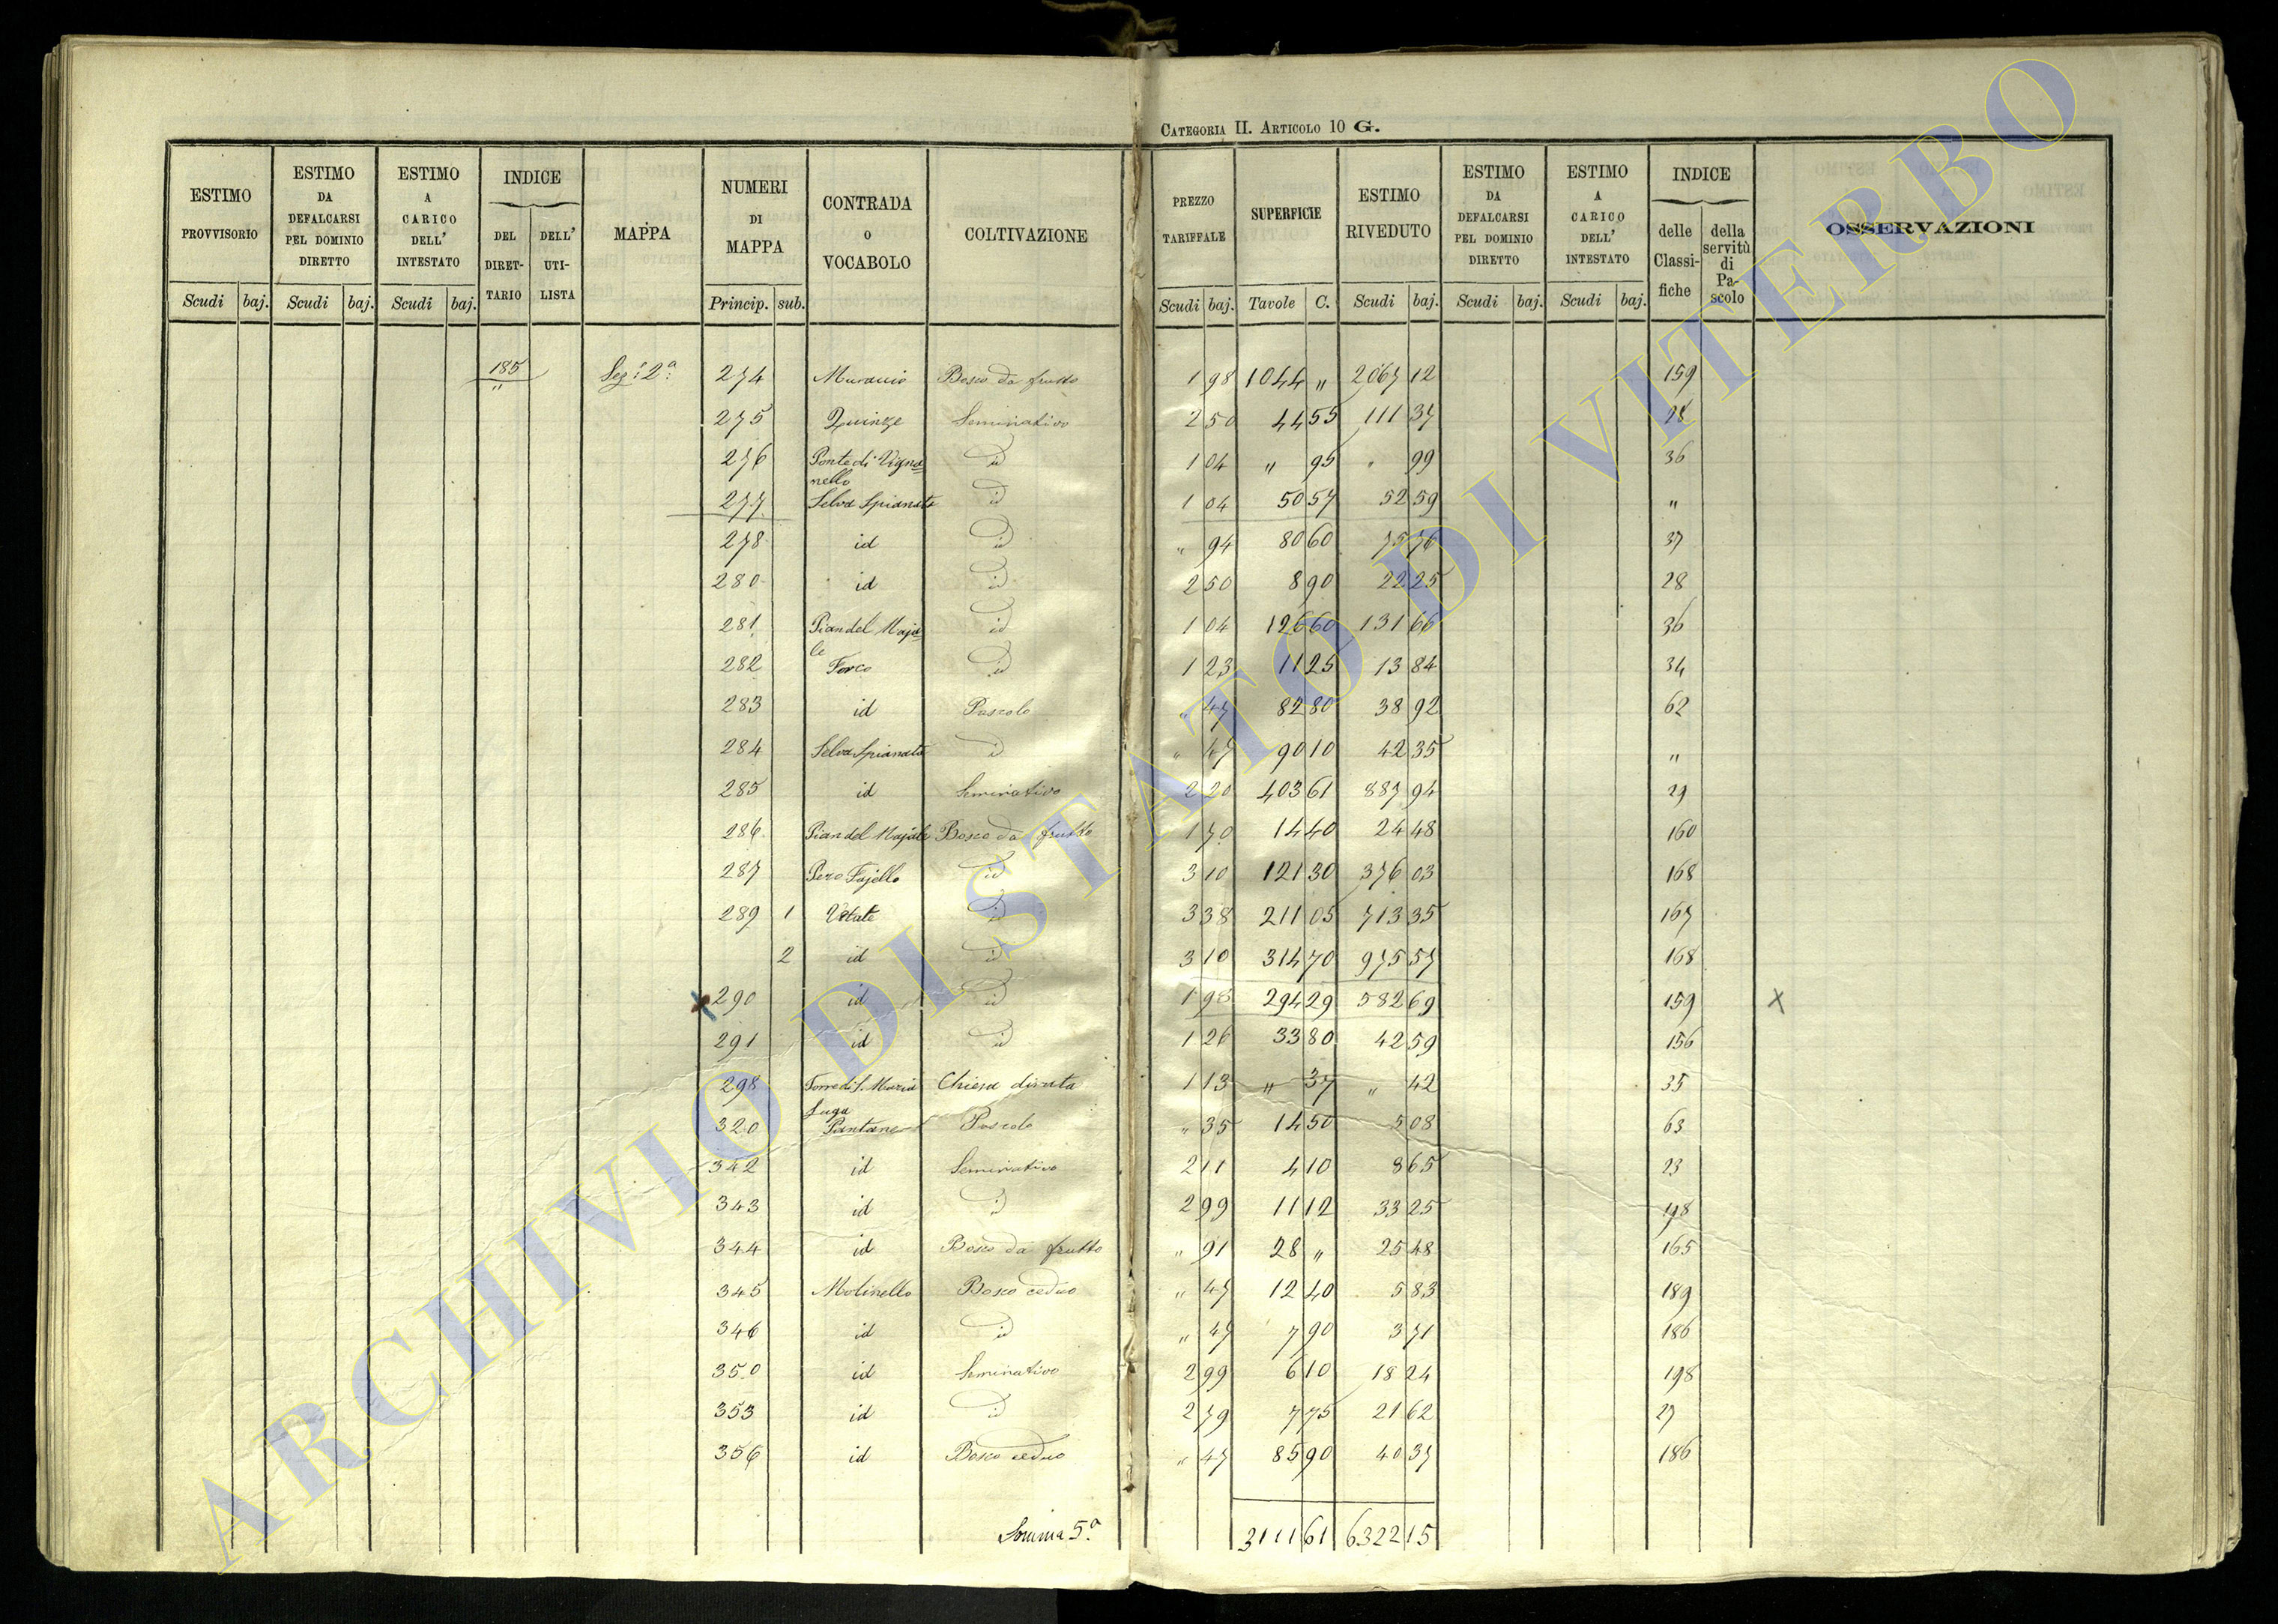 CATEGORIA II. ARTICOLO 10 G.
ESTIMO PROVVISORIO
ESTIMO DA DEFALCARSI PEL DOMINIO DIRETTO
ESTIMO A CARICO DELL' INTESTATO
INDICE
DEL DIRETTARIO
DELL' UTILISTA
MAPPA
NUMERI DI MAPPA
CONTRADA O VOCABOLO
COLTIVAZIONE
PREZZO TARIFFALE
SUPERFICIE
ESTIMO RIVEDUTO
ESTIMO DA DEFALCARSI PEL DOMINIO DIRETTO
ESTIMO A CARICO DELL' INTESTATO
INDICE
delle Classifiche
della servitù di Pascolo
OSSERVAZIONI
Scudi baj. Scudi baj. Scudi baj. Princip. sub. Scudi baj. Tavole C. Scudi baj. Scudi baj. Scudi baj.
185 " Seg: 2ª 274 Muraccio Bosco da frutto 1 98 1044 " 2067 12 159
275 Quinze Seminativo 2 50 44 55 111 37 28
276 Ponte di Vigna= id 1 04 " 95 " 99 36
nello
277 Selva Spianata id 1 04 50 57 52 59 "
278 id id " 94 80 60 75 76 37
280 id id 2 50 8 90 22 25 28
281 Pian del Maja= id 1 04 126 60 131 66 36
le
282 Forco id 1 23 11 25 13 84 34
283 id Pascolo " 47 82 80 38 92 62
284 Selva Spianata id " 47 90 10 42 35 "
285 id Seminativo 2 20 403 61 887 94 29
286 Pian del Majale Bosco da frutto 1 70 14 40 24 48 160
287 Pero Fajello id 3 10 121 30 376 03 168
289 1 id 3 38 211 05 713 35 167
2 id id 3 10 314 70 975 57 168
x 290 id id 1 98 294 29 582 69 159 x
291 id id 1 26 33 80 42 59 156
298 Torre di S. Maria Chiesa diruta 1 13 " 37 " 42 35
Luga
320 Pantane Pascolo " 35 14 50 5 08 63
342 id Seminativo 2 11 4 10 8 65 23
343 id id 2 99 11 12 33 25 198
344 id Bosco da frutto " 91 28 " 25 48 165
345 Molinello Bosco ceduo " 47 12 40 5 83 189
346 id id " 47 7 90 3 71 186
350 id Seminativo 2 99 6 10 18 24 198
353 id id 2 79 7 75 21 62 27
356 id Bosco ceduo " 47 85 90 40 37 186
Somma 5ª 3111 61 6322 15
ARCHIVIO DI STATO DI VITERBO